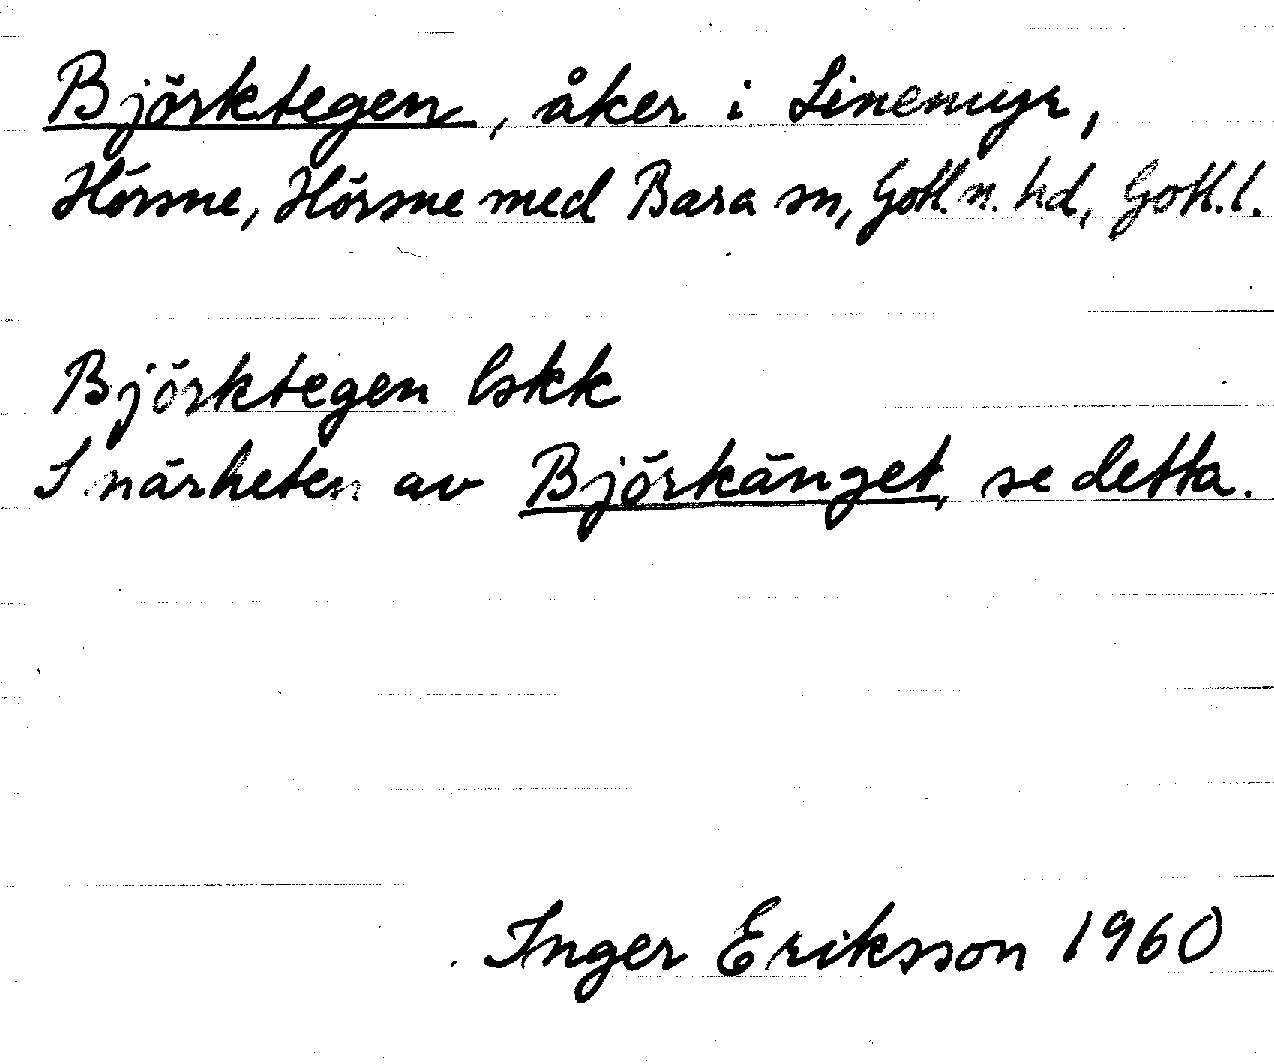 Björktegen, åker i Linemyr,
Hörsne, Hörsne med Bara sn, Gotl. n. hd, Gotl. l.
Björktegen lskk
I närheten av Björkänget, se detta.
Inger Eriksson 1960